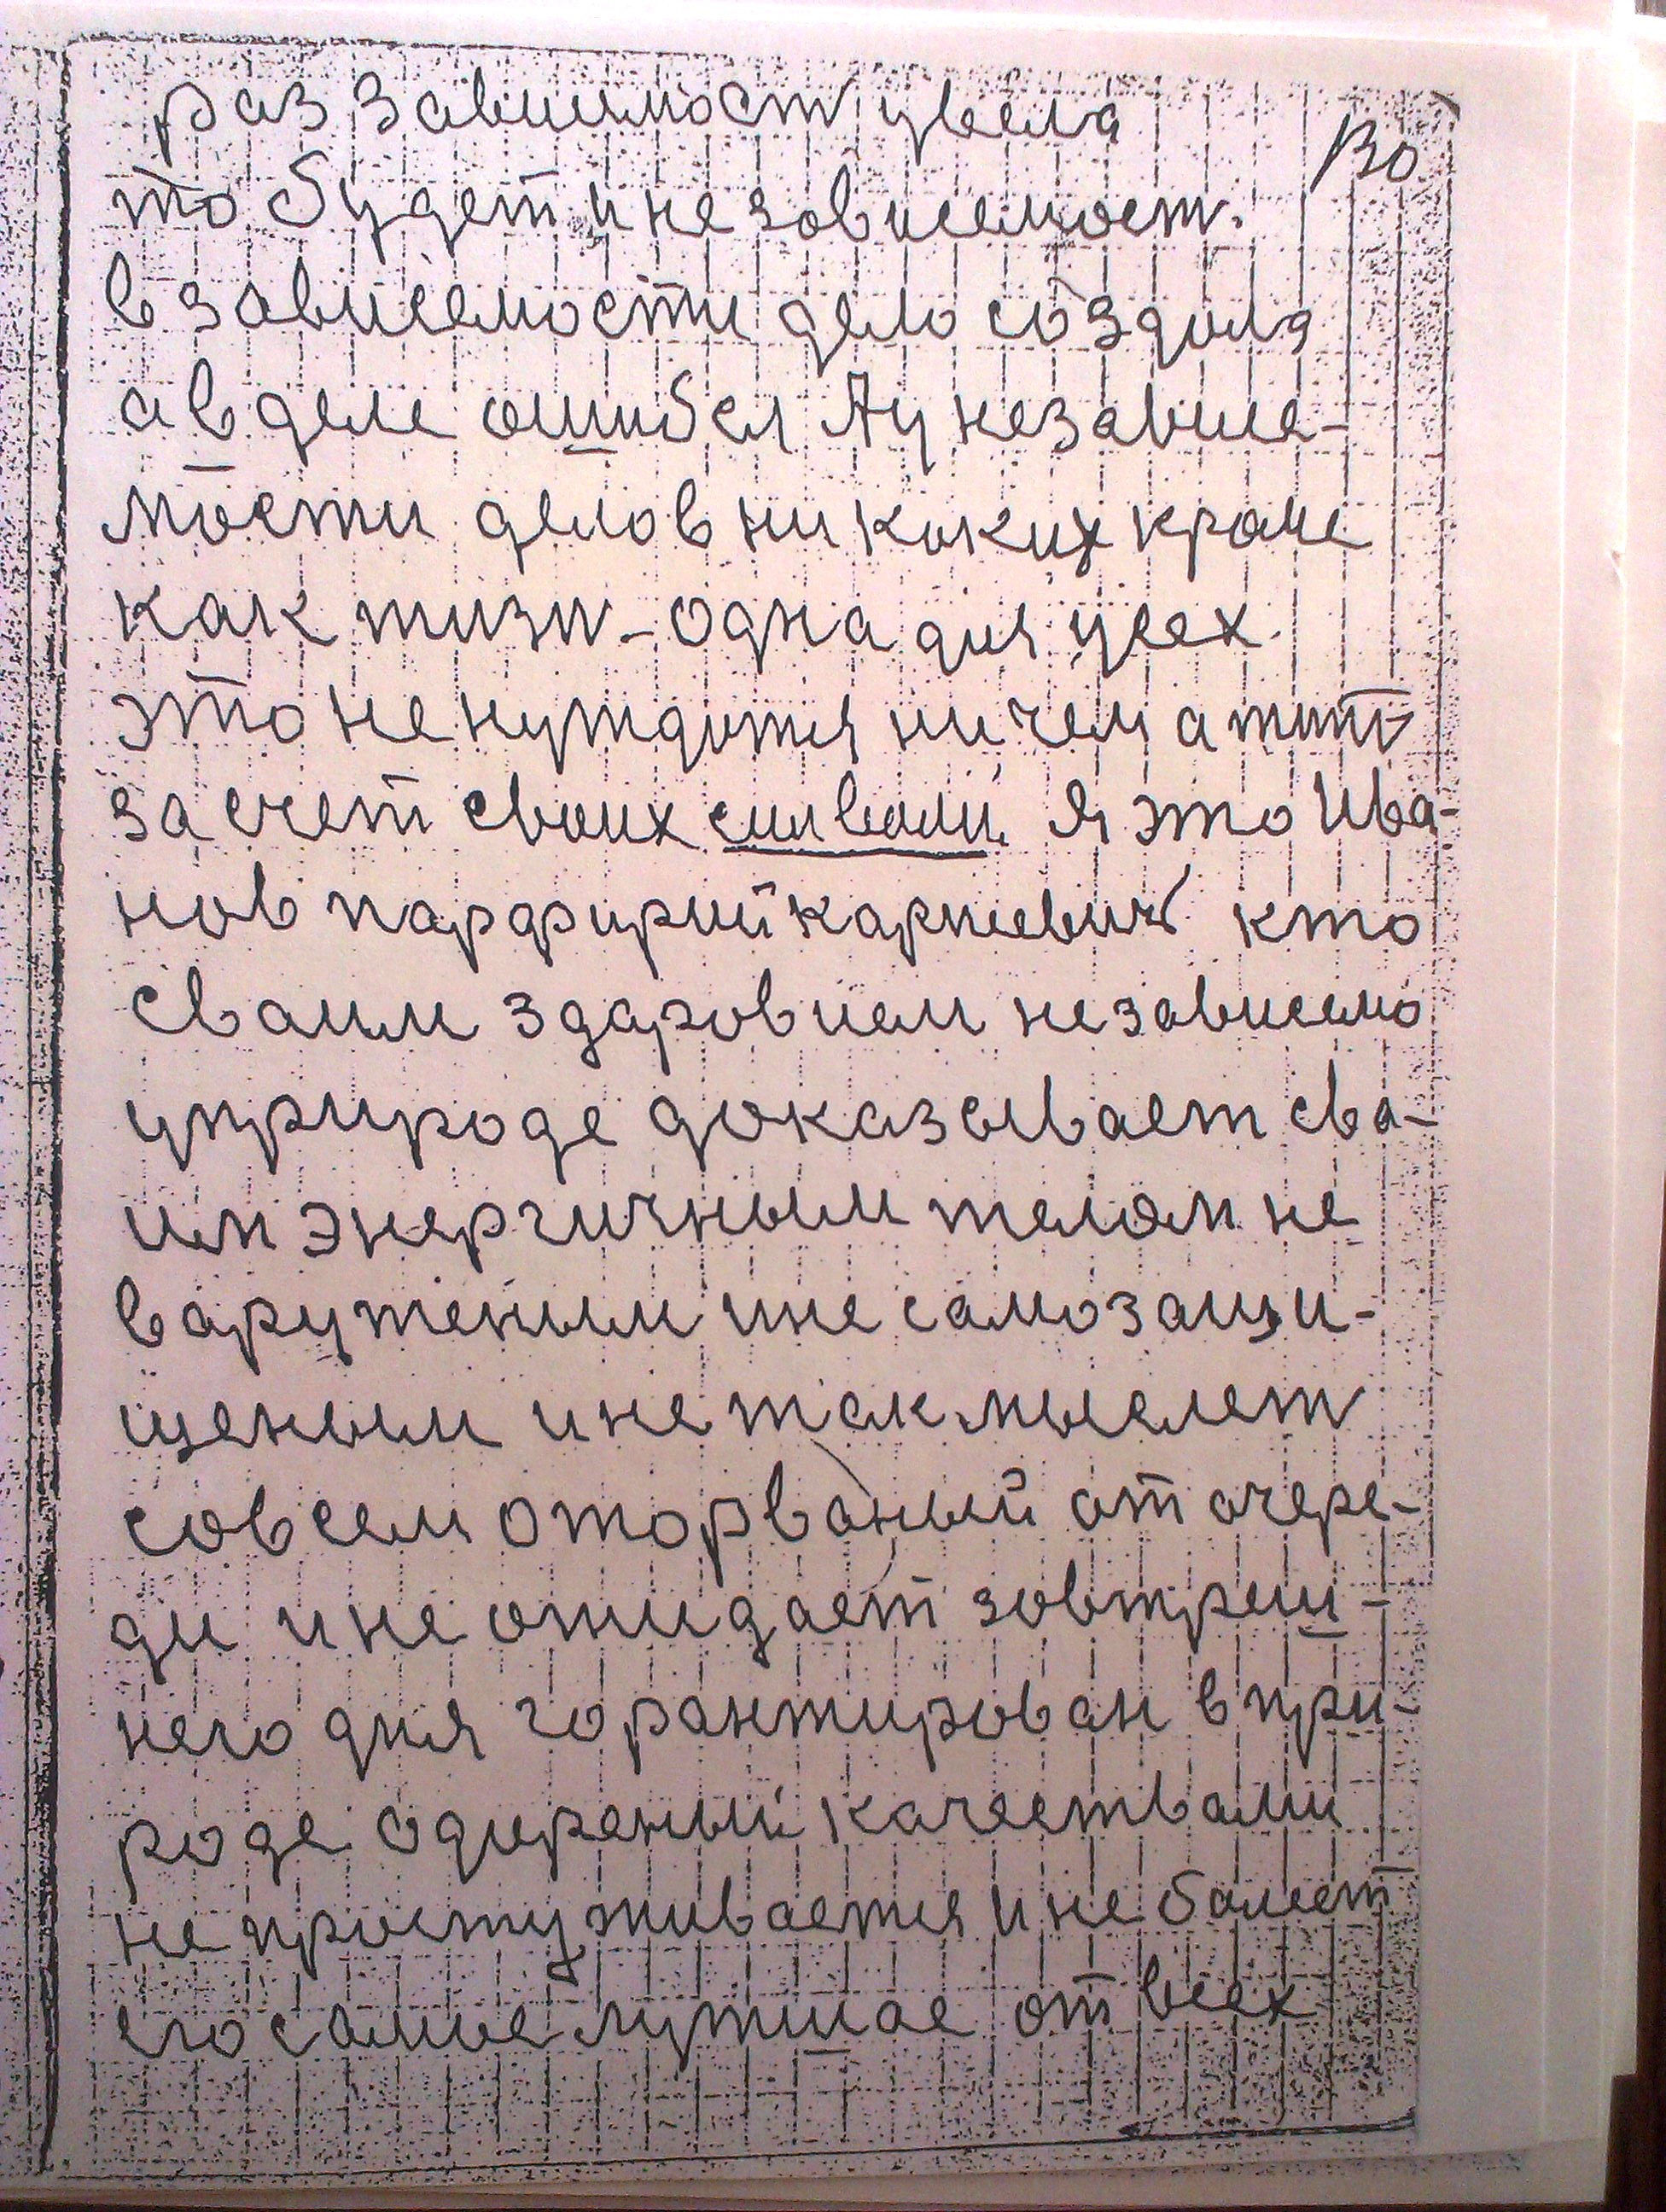 раз зависимост увела
Во
то будет и не зовисемост.
в зависемости дело создоля
а в деле ошибся Ау независе-
мости делов ни коких кроме
как жизн - одна для усех.
это не нуждится ни чем а жить
за счет своих сил воли. Я это Ива-
нов парфирий карпеевич кто
сваим здаровием не зависемо
уприроде доказывает сва-
им энергичным телом не
варуженым ине самозащи-
щеным и не так мыслет
совсем оторваный от очере-
ди и не ожидает зовтреш-
него дня горантирован в при-
роде одиреный качествами
не простуживается и не балеет
его самые лутшае от всех